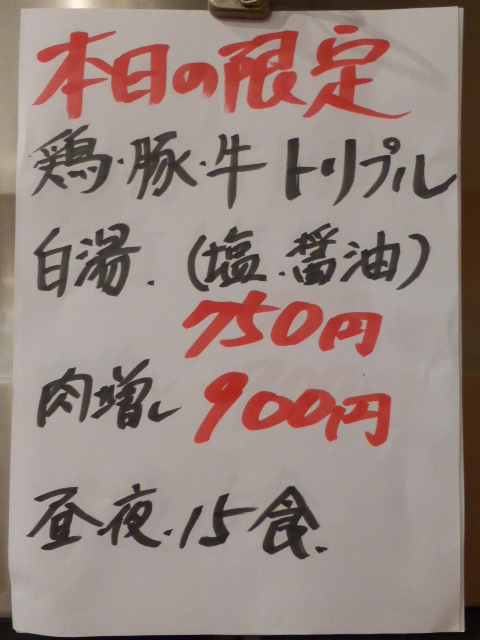 本日の限定
鶏・豚・牛 トリプル
白湯.(塩.醤油)
750円
肉増し 900円
昼夜.15食.